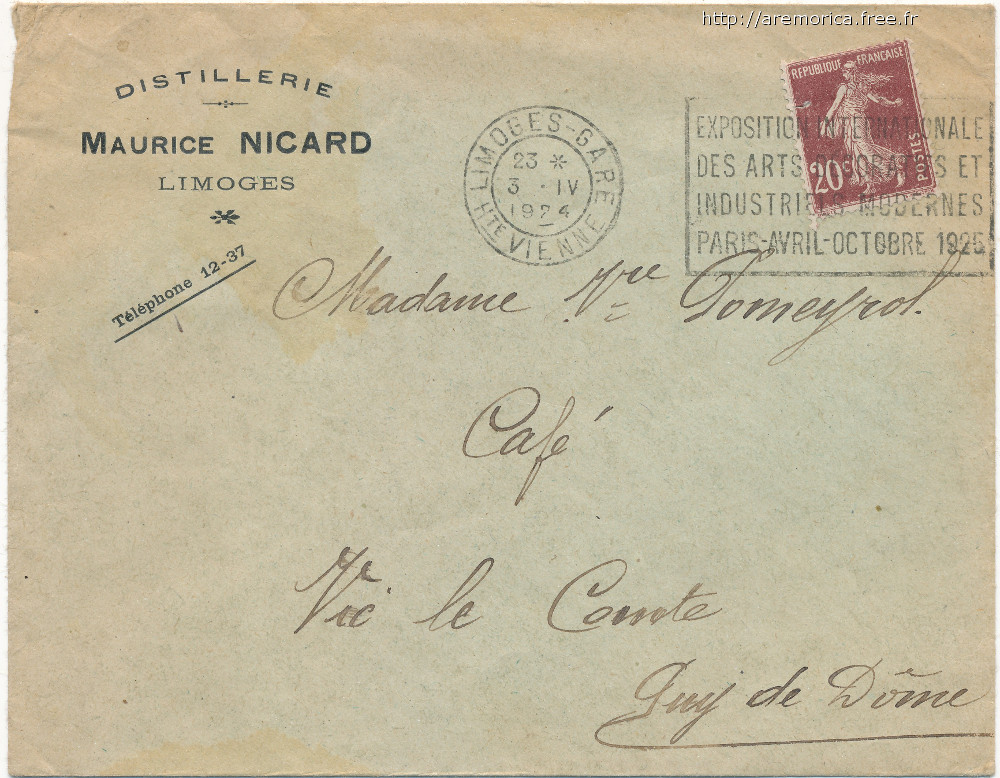 http://aremorica.free.fr
DISTILLERIE
MAURICE NICARD
LIMOGES
Téléphone 12-37
LIMOGES-GARE
23 *
3 - IV
1924
HTE VIENNE
REPUBLIQUE FRANÇAISE
POSTES
20c
EXPOSITION INTERNATIONALE
DES ARTS DECORATIFS ET
INDUSTRIELS MODERNES
PARIS-AVRIL-OCTOBRE 1925
Madame Vve Pomeyrol.
Café
Vic le Comte
Puy de Dôme